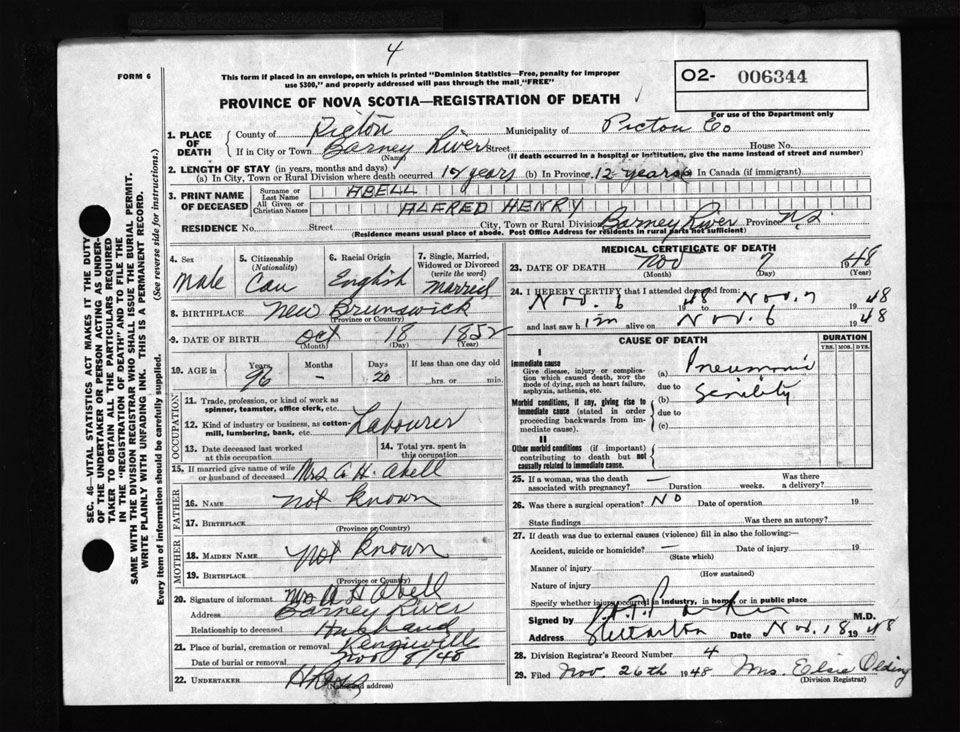 4
FORM 6
This form if placed in an envelope, on which is printed "Dominion Statistics—Free, penalty for improper
use $300," and properly addressed will pass through the mail "FREE"
O2- 006344
For use of the Department only
PROVINCE OF NOVA SCOTIA—REGISTRATION OF DEATH
1. PLACE OF DEATH
County of Pictou Municipality of Pictou Co
If in City or Town Barney River Street House No.
(Name) (If death occurred in a hospital or institution, give the name instead of street and number)
2. LENGTH OF STAY (in years, months and days)
(a) In City, Town or Rural Division where death occurred 12 years (b) In Province 12 years (c) In Canada (if immigrant)
3. PRINT NAME OF DECEASED
Surname or Last Name ABELL
All Given or Christian Names ALFRED HENRY
RESIDENCE No. Street City, Town or Rural Division Barney River Province N.S.
(Residence means usual place of abode. Post Office Address for residents in rural parts not sufficient)
4. Sex
Male
5. Citizenship
(Nationality)
Can
6. Racial Origin
English
7. Single, Married,
Widowed or Divorced
(write the word)
Married
8. BIRTHPLACE New Brunswick
(Province or Country)
9. DATE OF BIRTH Oct 18 1852
(Month) (Day) (Year)
10. AGE in
Years Months Days If less than one day old
96 - 20 hrs. or min.
OCCUPATION
11. Trade, profession, or kind of work as
spinner, teamster, office clerk, etc.
12. Kind of industry or business, as cotton-
mill, lumbering, bank, etc.
Labourer
13. Date deceased last worked
at this occupation
14. Total yrs. spent in
this occupation
15. If married give name of wife
or husband of deceased Mrs A. H. Abell
FATHER
16. NAME not known
17. BIRTHPLACE
(Province or Country)
MOTHER
18. MAIDEN NAME not known
19. BIRTHPLACE
(Province or Country)
20. Signature of informant Mrs A H Abell
Address Barney River
Relationship to deceased Husband
21. Place of burial, cremation or removal
Date of burial or removal Nov 8/48
22. UNDERTAKER
(Name and address)
MEDICAL CERTIFICATE OF DEATH
23. DATE OF DEATH Nov 7 1948
(Month) (Day) (Year)
24. I HEREBY CERTIFY that I attended deceased from:
Nov. 6 1948 to Nov. 7 1948
and last saw him alive on Nov. 6 1948
CAUSE OF DEATH
DURATION
YRS. MOS. DYS.
I
Immediate cause
Give disease, injury or complica-
tion which caused death, NOT the
mode of dying, such as heart failure,
asphyxia, asthenia, etc.
(a) Pneumonia
due to
Morbid conditions, if any, giving rise to
immediate cause (stated in order
proceeding backwards from im-
mediate cause).
(b) Senility
due to
(c)
II
Other morbid conditions (if important)
contributing to death but not
causally related to immediate cause.
25. If a woman, was the death
associated with pregnancy? — Duration weeks. Was there
a delivery?
26. Was there a surgical operation? No Date of operation 19
State findings Was there an autopsy?
27. If death was due to external causes (violence) fill in also the following:
Accident, suicide or homicide? — Date of injury 19
(State which)
Manner of injury
(How sustained)
Nature of injury
Specify whether injury occurred in industry, in home, or in public place
Signed by M.D.
Address Stellarton Date Nov. 18 1948
28. Division Registrar's Record Number 4
29. Filed Nov. 26th 1948 Mrs. Elsie Olding
(Division Registrar)
SEC. 46—VITAL STATISTICS ACT MAKES IT THE DUTY
OF THE UNDERTAKER OR PERSON ACTING AS UNDER-
TAKER TO OBTAIN ALL THE PARTICULARS REQUIRED
IN THE "REGISTRATION OF DEATH" AND TO FILE THE
SAME WITH THE DIVISION REGISTRAR WHO SHALL ISSUE THE BURIAL PERMIT.
WRITE PLAINLY WITH UNFADING INK. THIS IS A PERMANENT RECORD.
Every item of information should be carefully supplied. (See reverse side for instructions.)